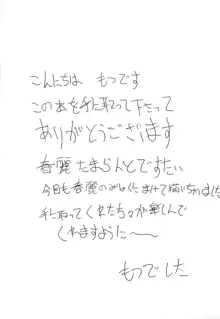 こんにちは もつです
この本を手に取って下さって
ありがとうございます
春麗たまらんとですたい
今日も春麗のみりょくにまけて描いちゃいました
手に取ってくれた方々が楽しんで
くれますように〜
もつでした